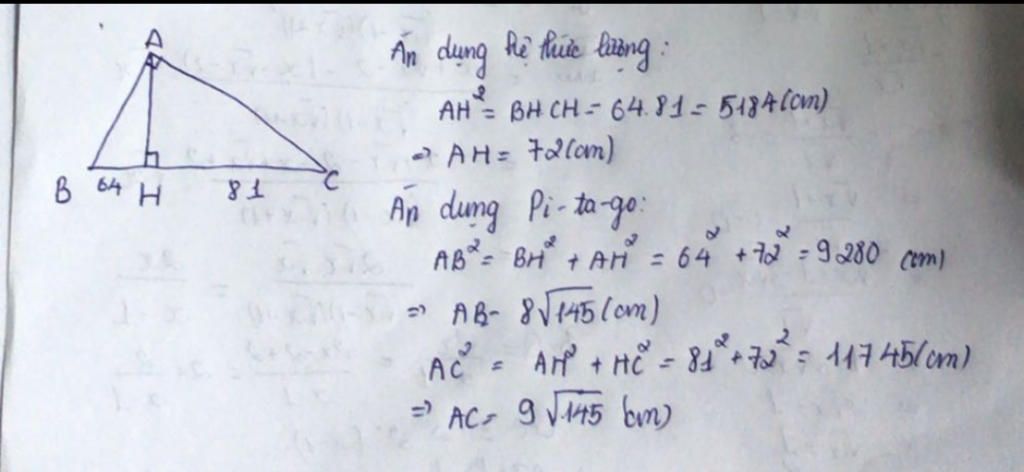 A
B 64 H 81 C
Áp dụng hệ thức lượng:
AH² = BH CH = 64.81 = 5184 (cm)
⇒ AH = 72 (cm)
Áp dụng Pi-ta-go:
AB² = BH² + AH² = 64² + 72² = 9280 (cm)
⇒ AB = 8√145 (cm)
AC² = AH² + HC² = 81² + 72² = 11745 (cm)
⇒ AC = 9√145 (cm)